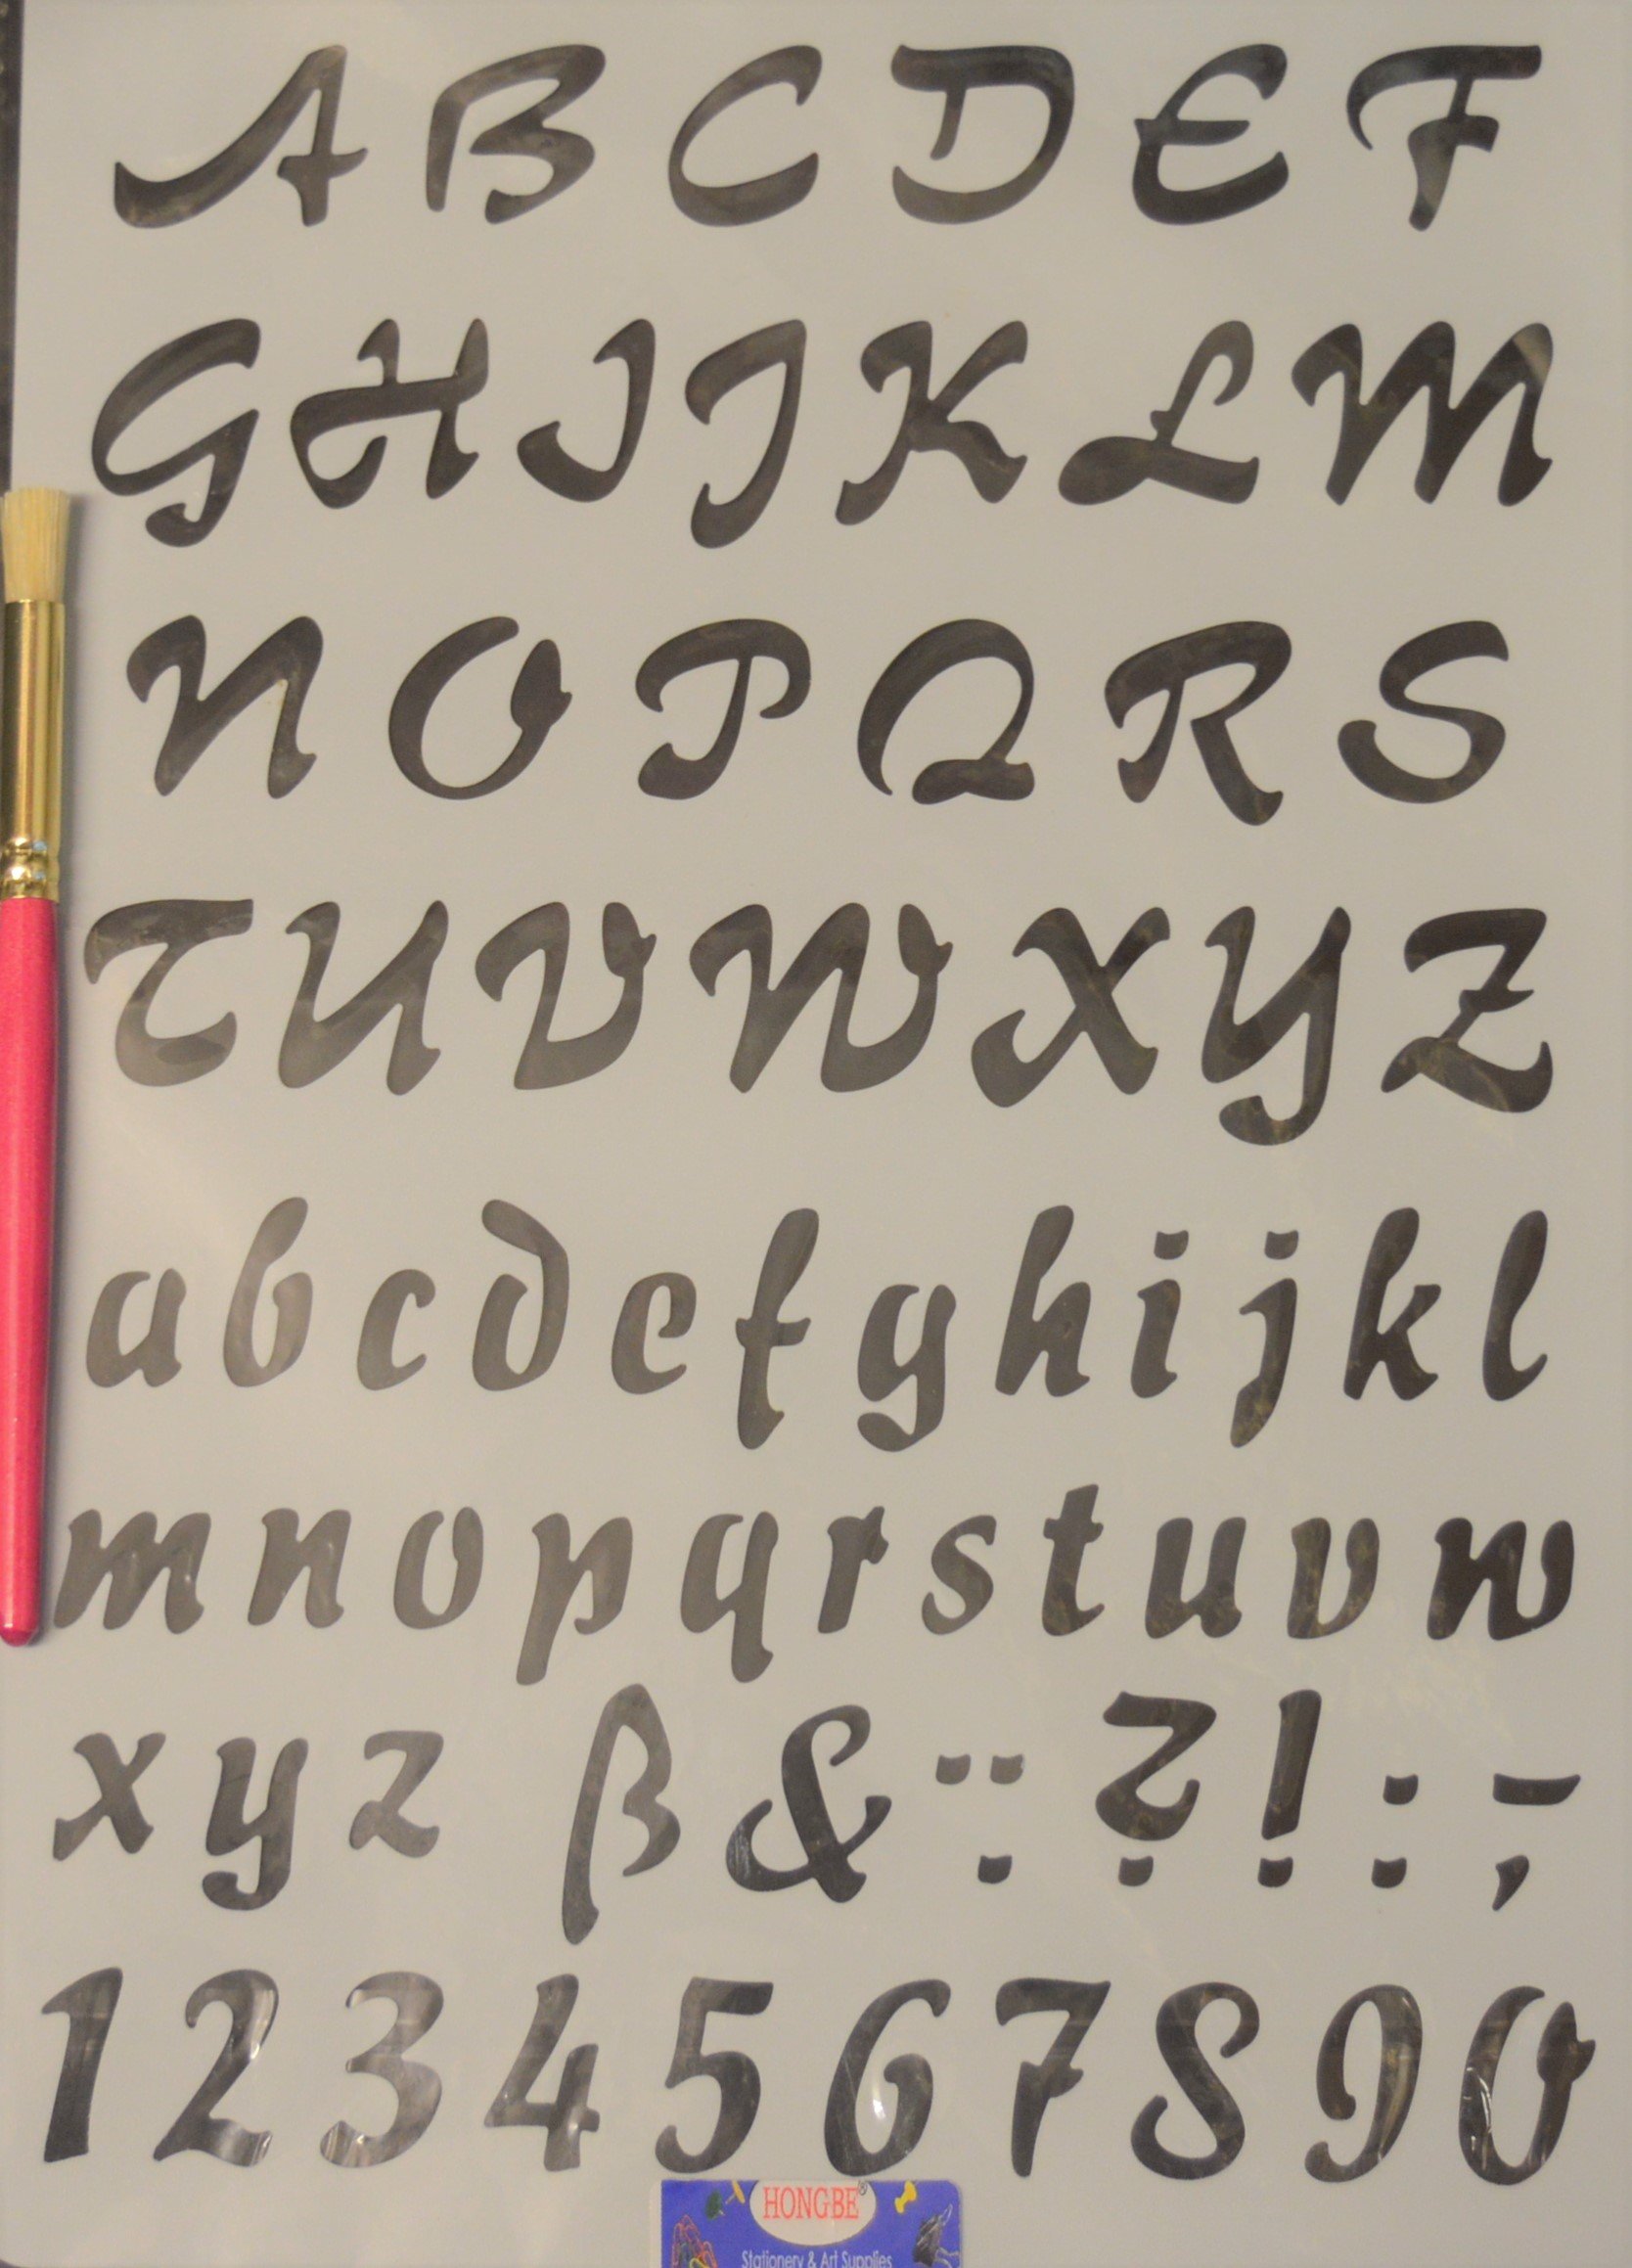 A B C D E F
G H I J K L M
N O P Q R S
T U V W X Y Z
a b c d e f g h i j k l
m n o p q r s t u v w
x y z ß & ¨ . ? ! : - ,
1 2 3 4 5 6 7 8 9 0
HONGBE®
Stationery & Art Supplies